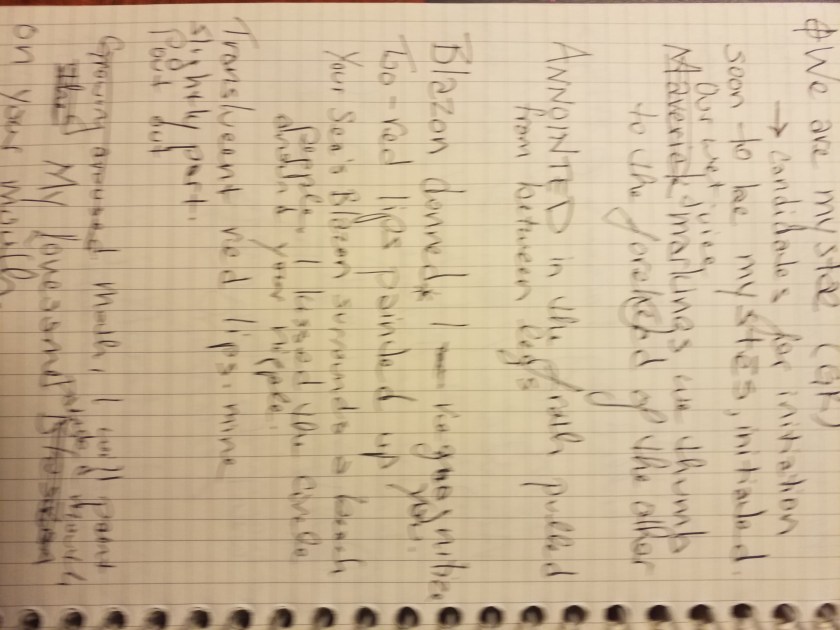 We are mystae (Gk)
→ candidates for initiation
soon to be mystES, initiated.
Our wet
Maverick markings we thumb
to the forehead of the other
ANNOINTED in the froth pulled
from between legs
Blazon donned, I
you.
Too-red lips painted up
Your Sea's Blazon surrounds a beach
pepple. I kissed the circle
around your nipple.
Translucent red lips: mine
slightly part.
pout out
Growing aroused mouth, I will paint
My
on your mouth.